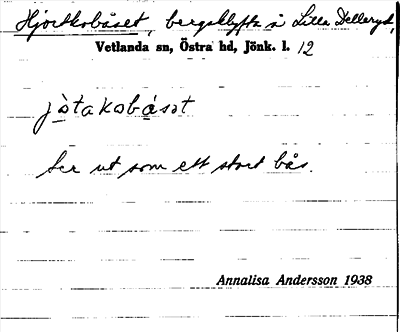 Hjortkobåset, bergsklyfta å Lilla Delleryd,
Vetlanda sn, Östra hd, Jönk. l. 12
jòtakobásat
Ser ut som ett stort bås.
Annalisa Andersson 1938